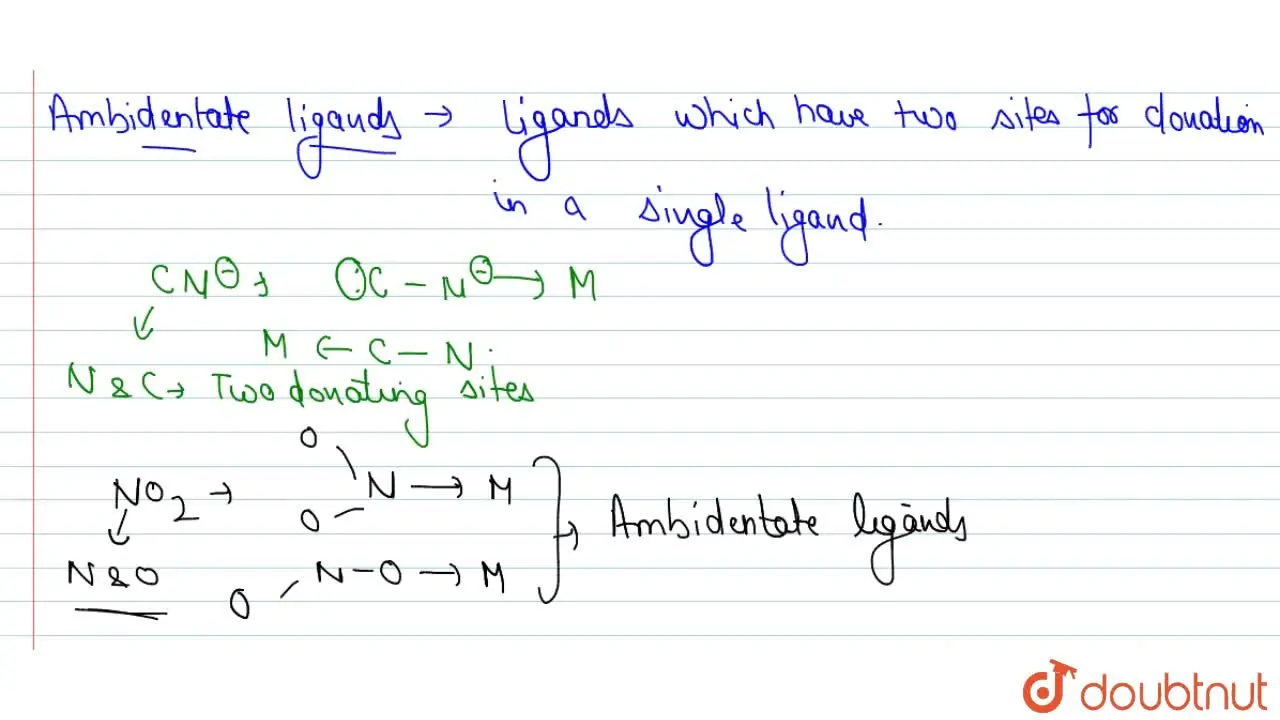 Ambidentate ligands → ligands which have two sites for donation
in a single ligand.
CN⊖ → OC – N⊖ → M
M ← C – N:
N & C → Two donating sites
O
NO2 → N → M
O
→ Ambidentate ligands
N & O N – O → M
O
doubtnut